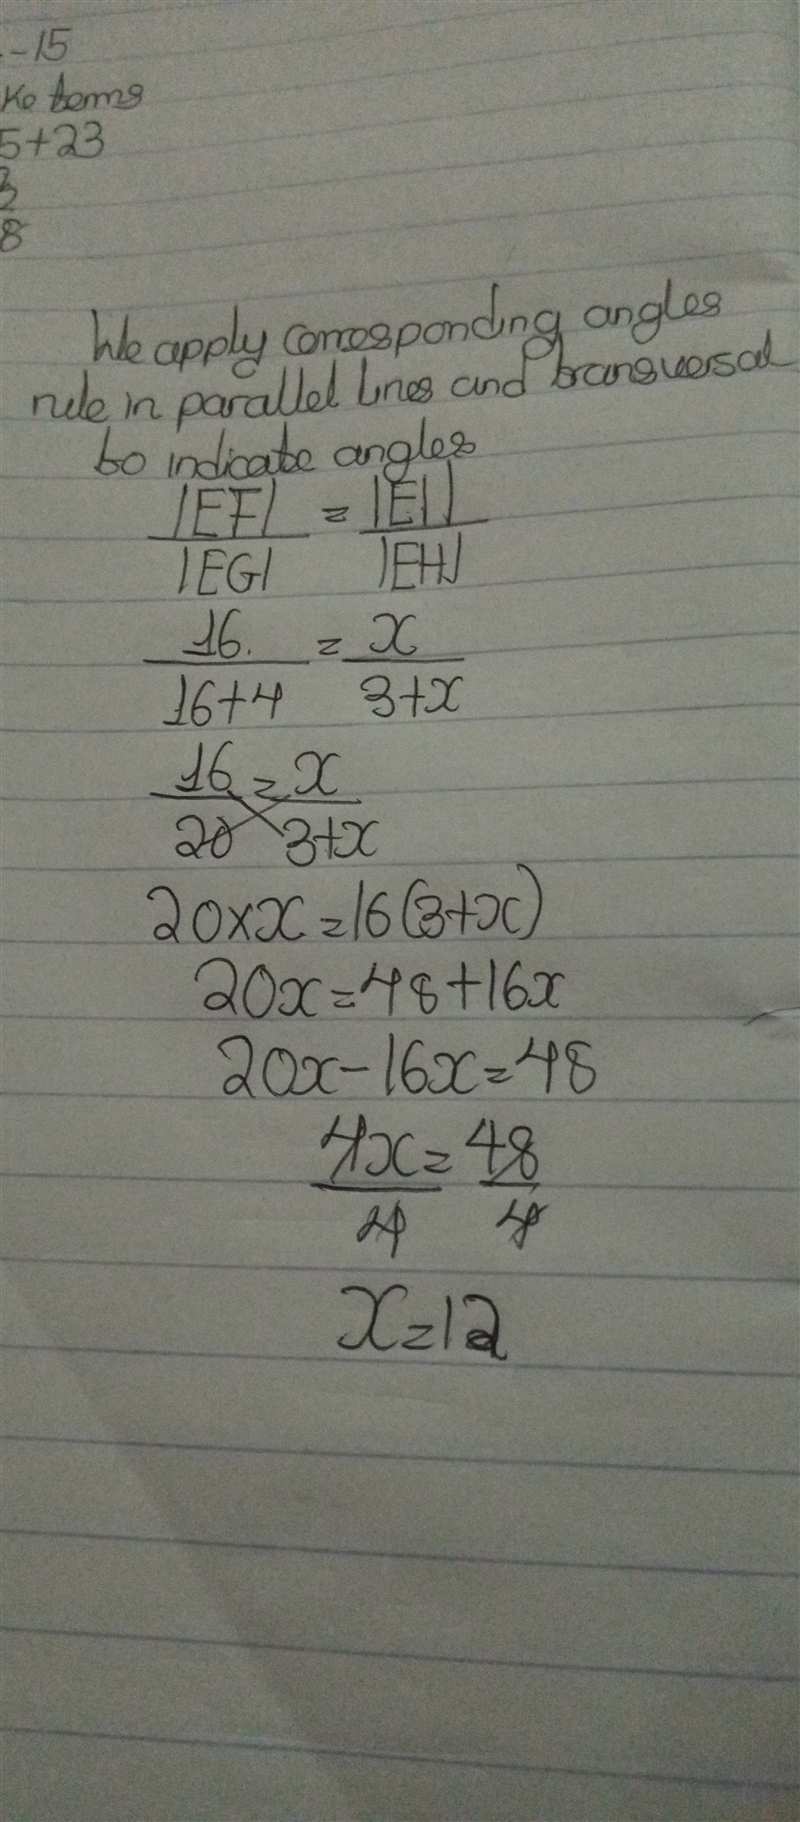 -15
ke terms
5+23
3
8
We apply corresponding angles
rule in parallel lines and transversal
to indicate angles
|EF| = |EI|
|EG| |EH|
16 = x
16+4 3+x
16 = x
20 3+x
20×x=16(3+x)
20x=48+16x
20x-16x=48
4x=48
4 4
x=12